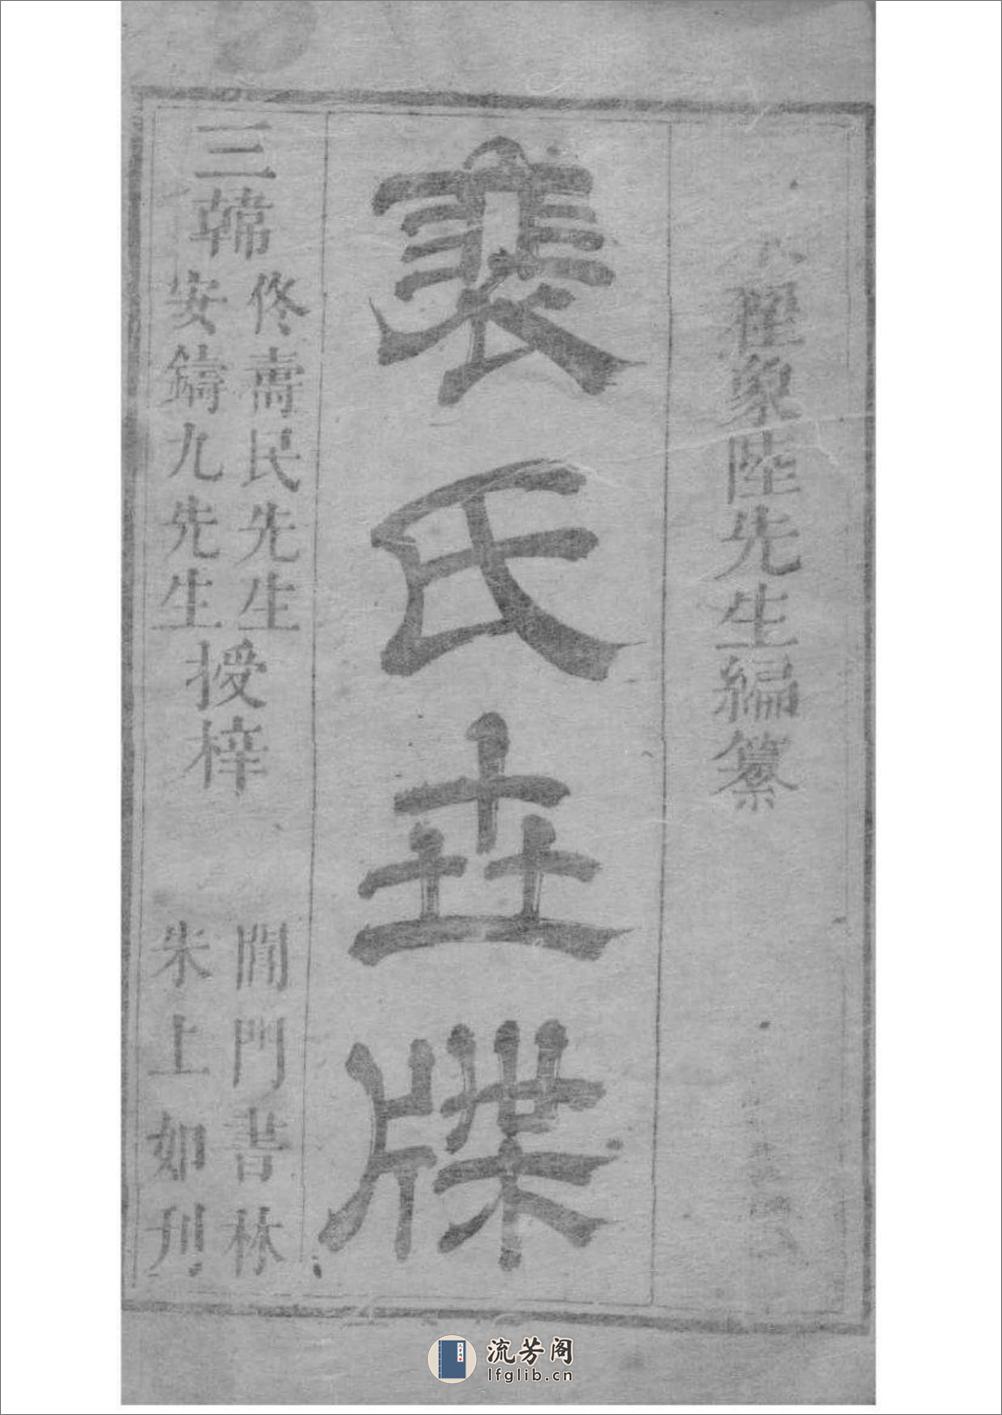 翟象陸先生編纂
裵氏世牒
三韓
佟壽民先生
安鑄九先生
授梓
閶門書林
朱上如刊
流芳阁
lfglib.cn